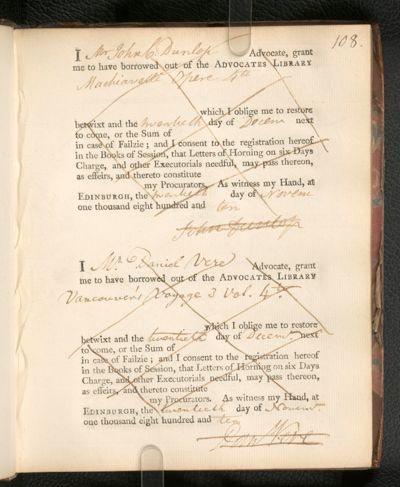 108.
I Mr John C. Dunlop Advocate, grant
me to have borrowed out of the ADVOCATES LIBRARY
Machiavelli Opere 4to
which I oblige me to restore
betwixt and the twentieth day of Decem next
to come, or the Sum of
in case of Failzie; and I consent to the registration hereof
in the Books of Session, that Letters of Horning on six Days
Charge, and other Executorials needful, may pass thereon,
as effeirs, and thereto constitute
my Procurators. As witness my Hand, at
EDINBURGH, the twentieth day of Novem
one thousand eight hundred and ten
John Dunlop
I Mr Daniel Vere Advocate, grant
me to have borrowed out of the ADVOCATES LIBRARY
Vancouver's Voyage 3 Vol. 4to
which I oblige me to restore
betwixt and the twentieth day of Decemr. next
to come, or the Sum of
in case of Failzie; and I consent to the registration hereof
in the Books of Session, that Letters of Horning on six Days
Charge, and other Executorials needful, may pass thereon,
as effeirs, and thereto constitute
my Procurators. As witness my Hand, at
EDINBURGH, the twentieth day of Novemr.
one thousand eight hundred and ten
Vere